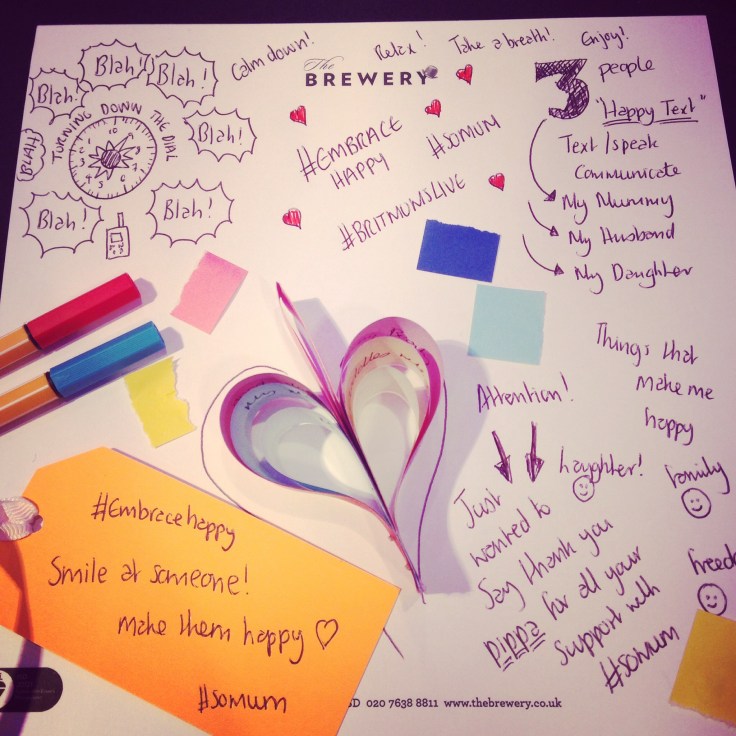 Calm down!
Relax!
Take a breath!
Enjoy!
The
BREWERY
Blah!
Blah!
Blah!
Blah!
Blah!
Blah!
TURNING DOWN THE DIAL
#EMBRACE
HAPPY
#SOMUM
#BRITMUMSLIVE
3 people
"Happy Text"
Text/speak
Communicate
My Mummy
My Husband
My Daughter
Things that
make me
happy
Laughter!
family
freed
Attention!
Just
wanted to
Say thank you
PIPPA for all your
support with
#somum
#Embracehappy
Smile at someone!
make them happy
#somum
SD 020 7638 8811 www.thebrewery.co.uk